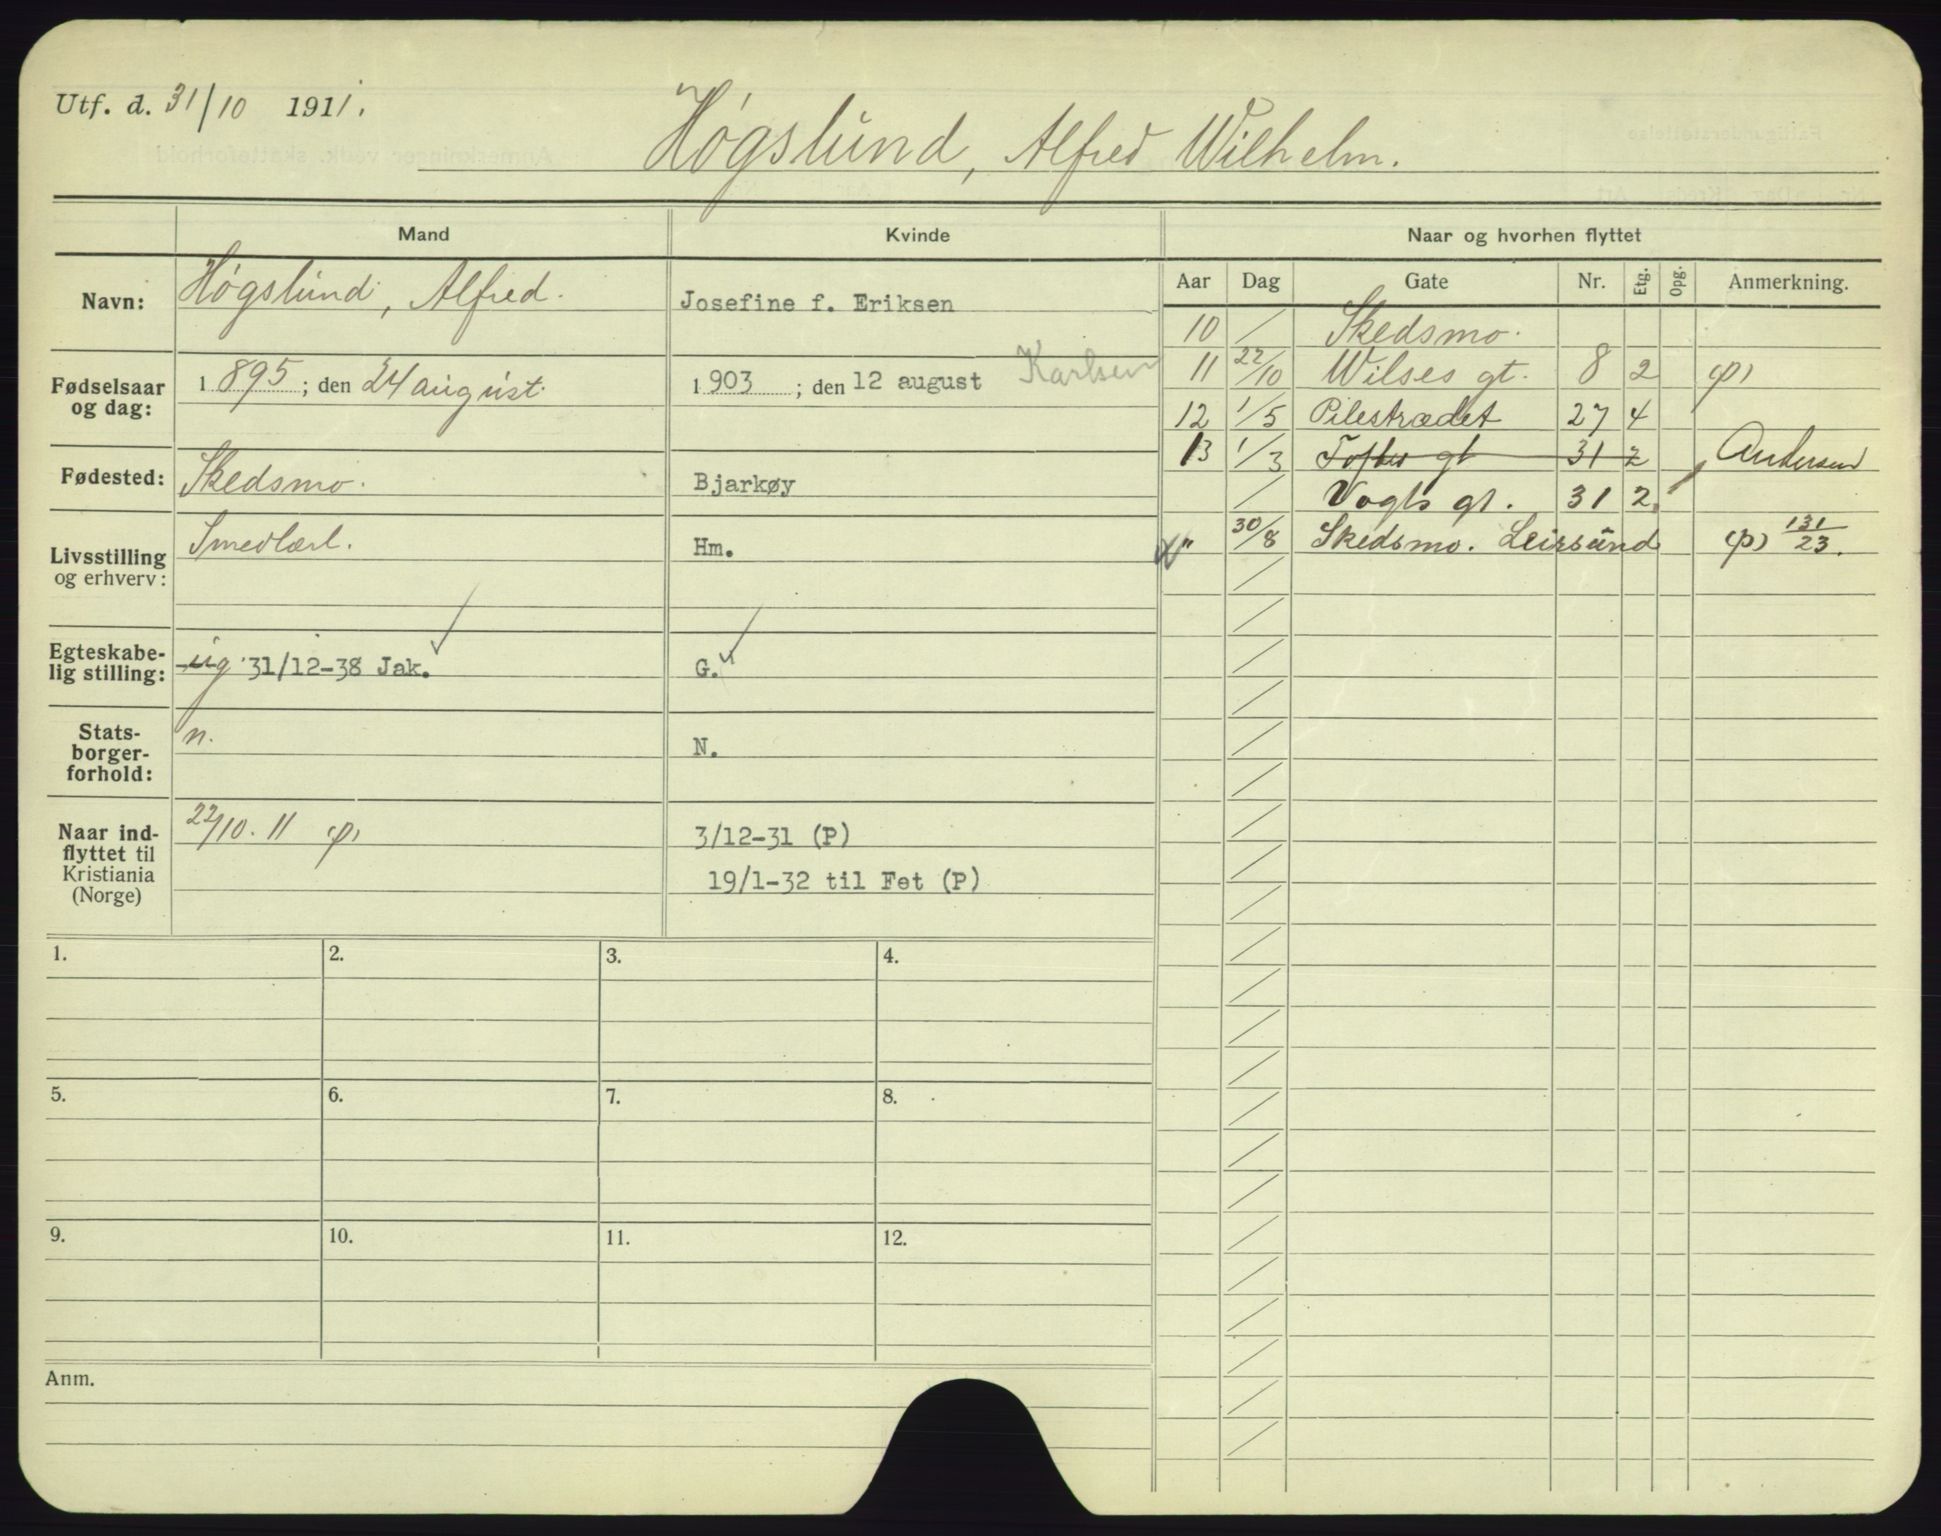 Utf. d. 31/10 1911.
Høgslund, Alfred Wilhelm.
Mand
Kvinde
Naar og hvorhen flyttet
Navn:
Høgslund, Alfred.
Josefine f. Eriksen
Karlsen
Fødselsaar og dag:
1 895 ; den 24 august.
1 903 ; den 12 august
Fødested:
Skedsmo.
Bjarkøy
Livsstilling og erhverv:
Smedlærl.
Hm.
Egteskabelig stilling:
ug 31/12-38 Jak.
G.
Statsborgerforhold:
n.
N.
Naar indflyttet til Kristiania (Norge)
22/10. 11 (p)
3/12-31 (P)
19/1-32 til Fet (P)
Aar Dag Gate Nr. Etg. Opg. Anmerkning.
10 / Skedsmo.
11 22/10 Wilses gt. 8 2 (p)
12 1/5 Pilestrædet 27 4
13 1/3 Toftes gt 31 2 Andersen
/ Vogts gt. 31 2.
" 30/8 Skedsmo. Leirsund (p) 131/23.
1. 2. 3. 4.
5. 6. 7. 8.
9. 10. 11. 12.
Anm.